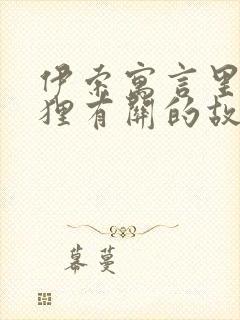 伊索寓言里
狸有關的故
幕蔓